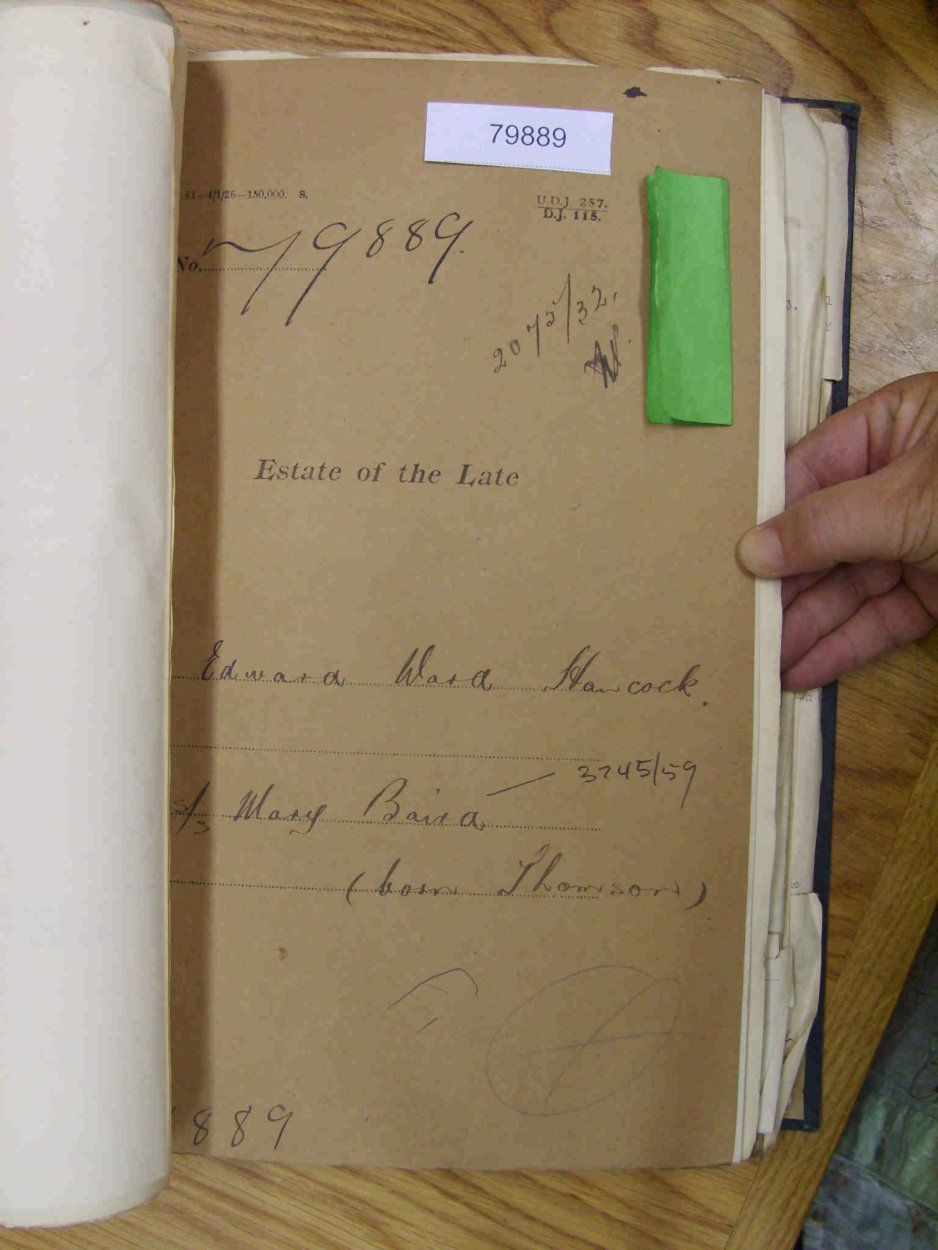 79889
61—4/1/26—150,000. S.
U.D.J. 257.
D.J. 115.
No. 79889.
2075/32.
Estate of the Late
Edward Ward Hancock.
3245/59
s/s Mary Baird
(born Thomson)
889